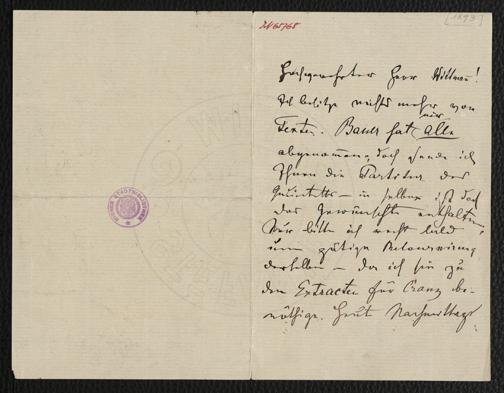 [1893]
Hochgeehrter Herr Wittmann!
Ich besitze nichts mehr von
Texten. Bauer hat mir alle
abgenommen, doch sende ich
Ihnen die Partitur des
Quintetts – in selber ist doch
das Gewünschte enthalten,
Nur bitte ich recht bald
um gütige Retournirung
derselben – da ich sie zu
den Extracten für Cranz be-
nöthige. Heute Nachmittags